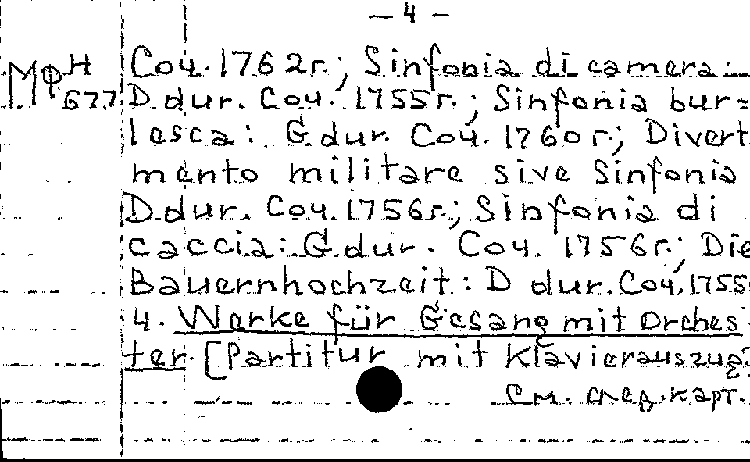 — 4 —
МФ Н 677
Соч. 1762г.; Sinfonia di camera:
D dur. Соч. 1755г.; Sinfonia bur=
lesca: G dur. Соч. 1760г.; Divert
mento militare sive Sinfonia
D dur. Соч. 1756г.; Sinfonia di
caccia: G dur. Соч. 1756г.; Die
Bauernhochzeit: D dur. Соч. 1755
4. Werke für Gesang mit Orches
ter [Partitur mit Klavierauszug]
См. след. карт.